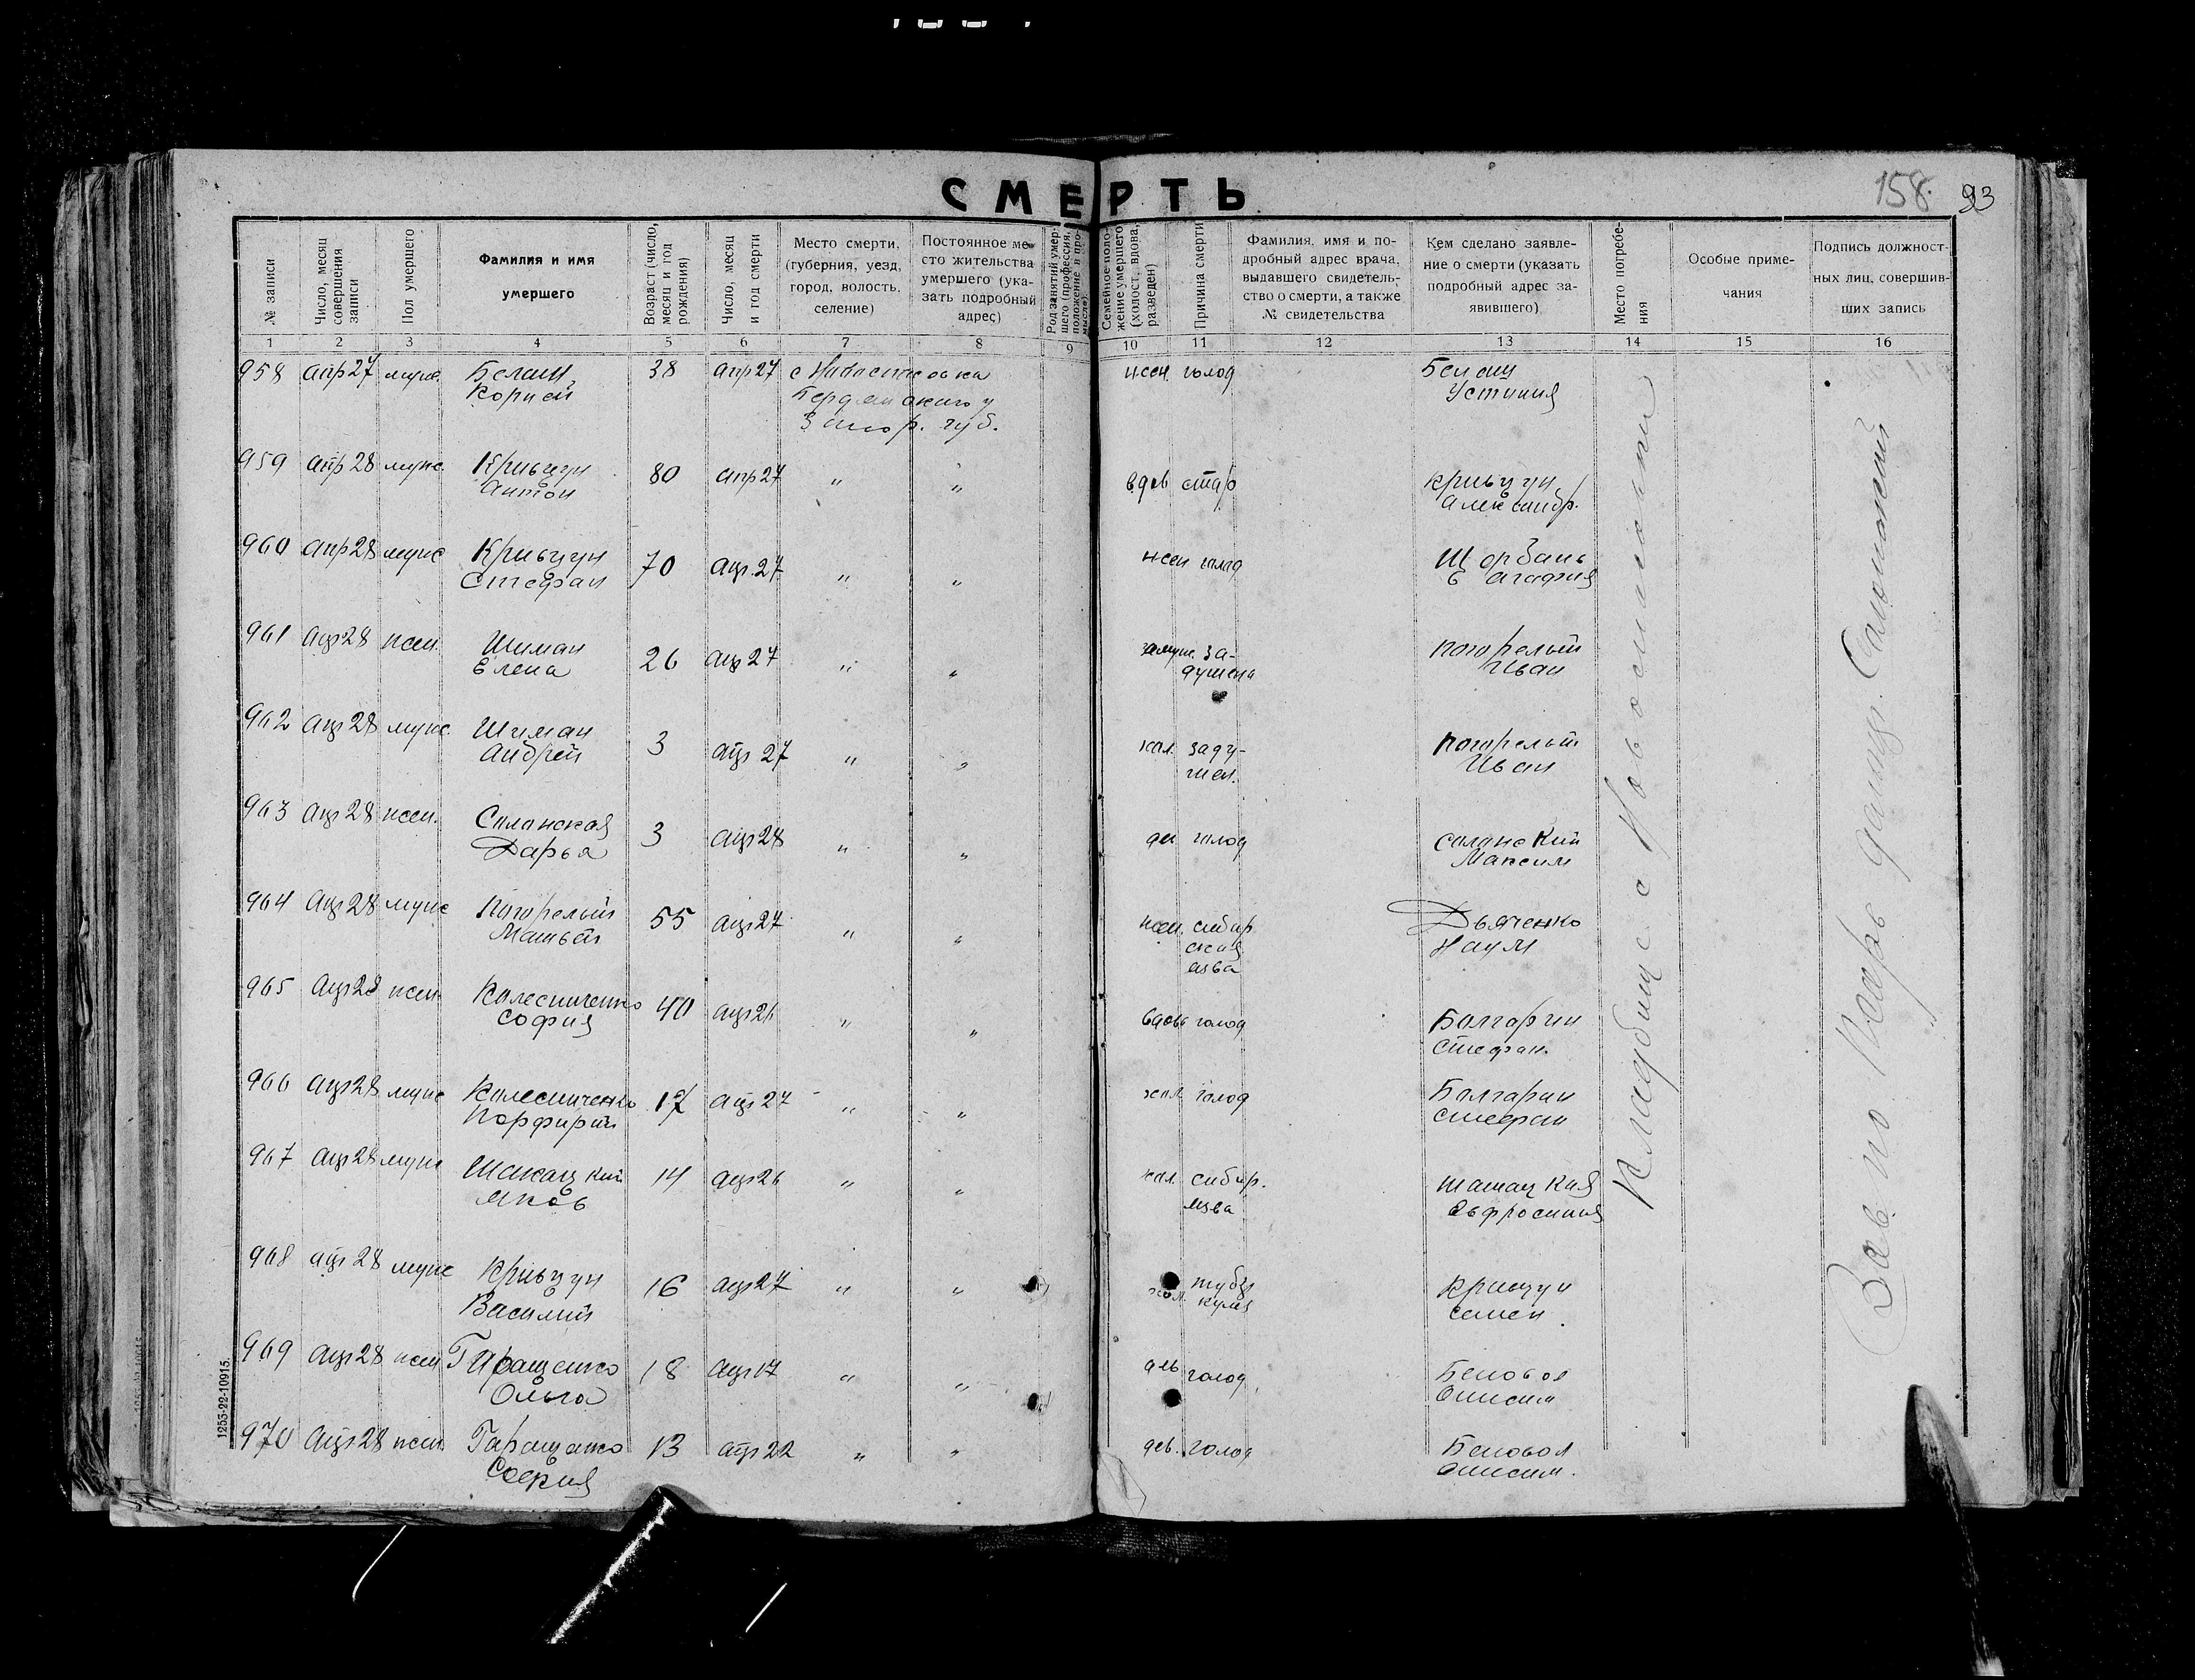 СМЕРТЬ
158. 93
№ записи
Число, месяц совершения записи
Пол умершего
Фамилия и имя умершего
Возраст (число, месяц и год рождения)
Число, месяц и год смерти
Место смерти, (губерния, уезд, город, волость, селение)
Постоянное место жительства умершего (указать подробный адрес)
Род занятий умершего (профессия, положение в промысле)
Семейное положение умершего (холост, вдова, разведен)
Причина смерти
Фамилия, имя и подробный адрес врача, выдавшего свидетельство о смерти, а также № свидетельства
Кем сделано заявление о смерти (указать подробный адрес заявившего)
Место погребения
Особые примечания
Подпись должностных лиц, совершивших запись
1 2 3 4 5 6 7 8 9 10 11 12 13 14 15 16
958 апр 27 муж. Белаш Корней 38 апр 27 с Новоспасовка Бердянского у Запор. губ. жен. голод Белаш Устиния
959 апр 28 муж. Кривцун Антон 80 апр 27 " " вдов стар Кривцун Александр.
960 апр 28 муж Кривцун Стефан 70 апр. 27 " " жен голод Щербань Агафия
961 апр 28 жен. Шиман Елена 26 апр 27 " " замуж. задушена Погорелый Иван
962 апр 28 муж. Шиман Андрей 3 апр 27 " " хол. задушен. Погорелый Иван
963 апр 28 жен. Саланская Дарья 3 апр 28 " " голод Саланский Максим
964 апр 28 муж Погорелый Матвей 55 апр 27 " " жен. сибирская язва Дьяченко Наум
965 апр 28 жен. Колесниченко София 40 апр 26 " " вдова голод Болгарин Стефан.
966 апр 28 муж Колесниченко Порфирий 17 апр 27 " " хол голод Болгарин Стефан
967 апр 28 муж Яков 14 апр 26 " " хол. сибир. язва Евфросиния
968 апр 28 муж Кривцун Василий 16 апр 27 " " хол. Кривцун Семен.
969 апр 28 жен Гаращенко Ольга 18 апр 17 " " дев голод Беловол Онисим
970 апр 28 жен. Гаращенко София 13 апр 22 " " дев. голод Беловол Онисим.
Кладбище с Новоспасовки
Зав. по
1253-22-10915.